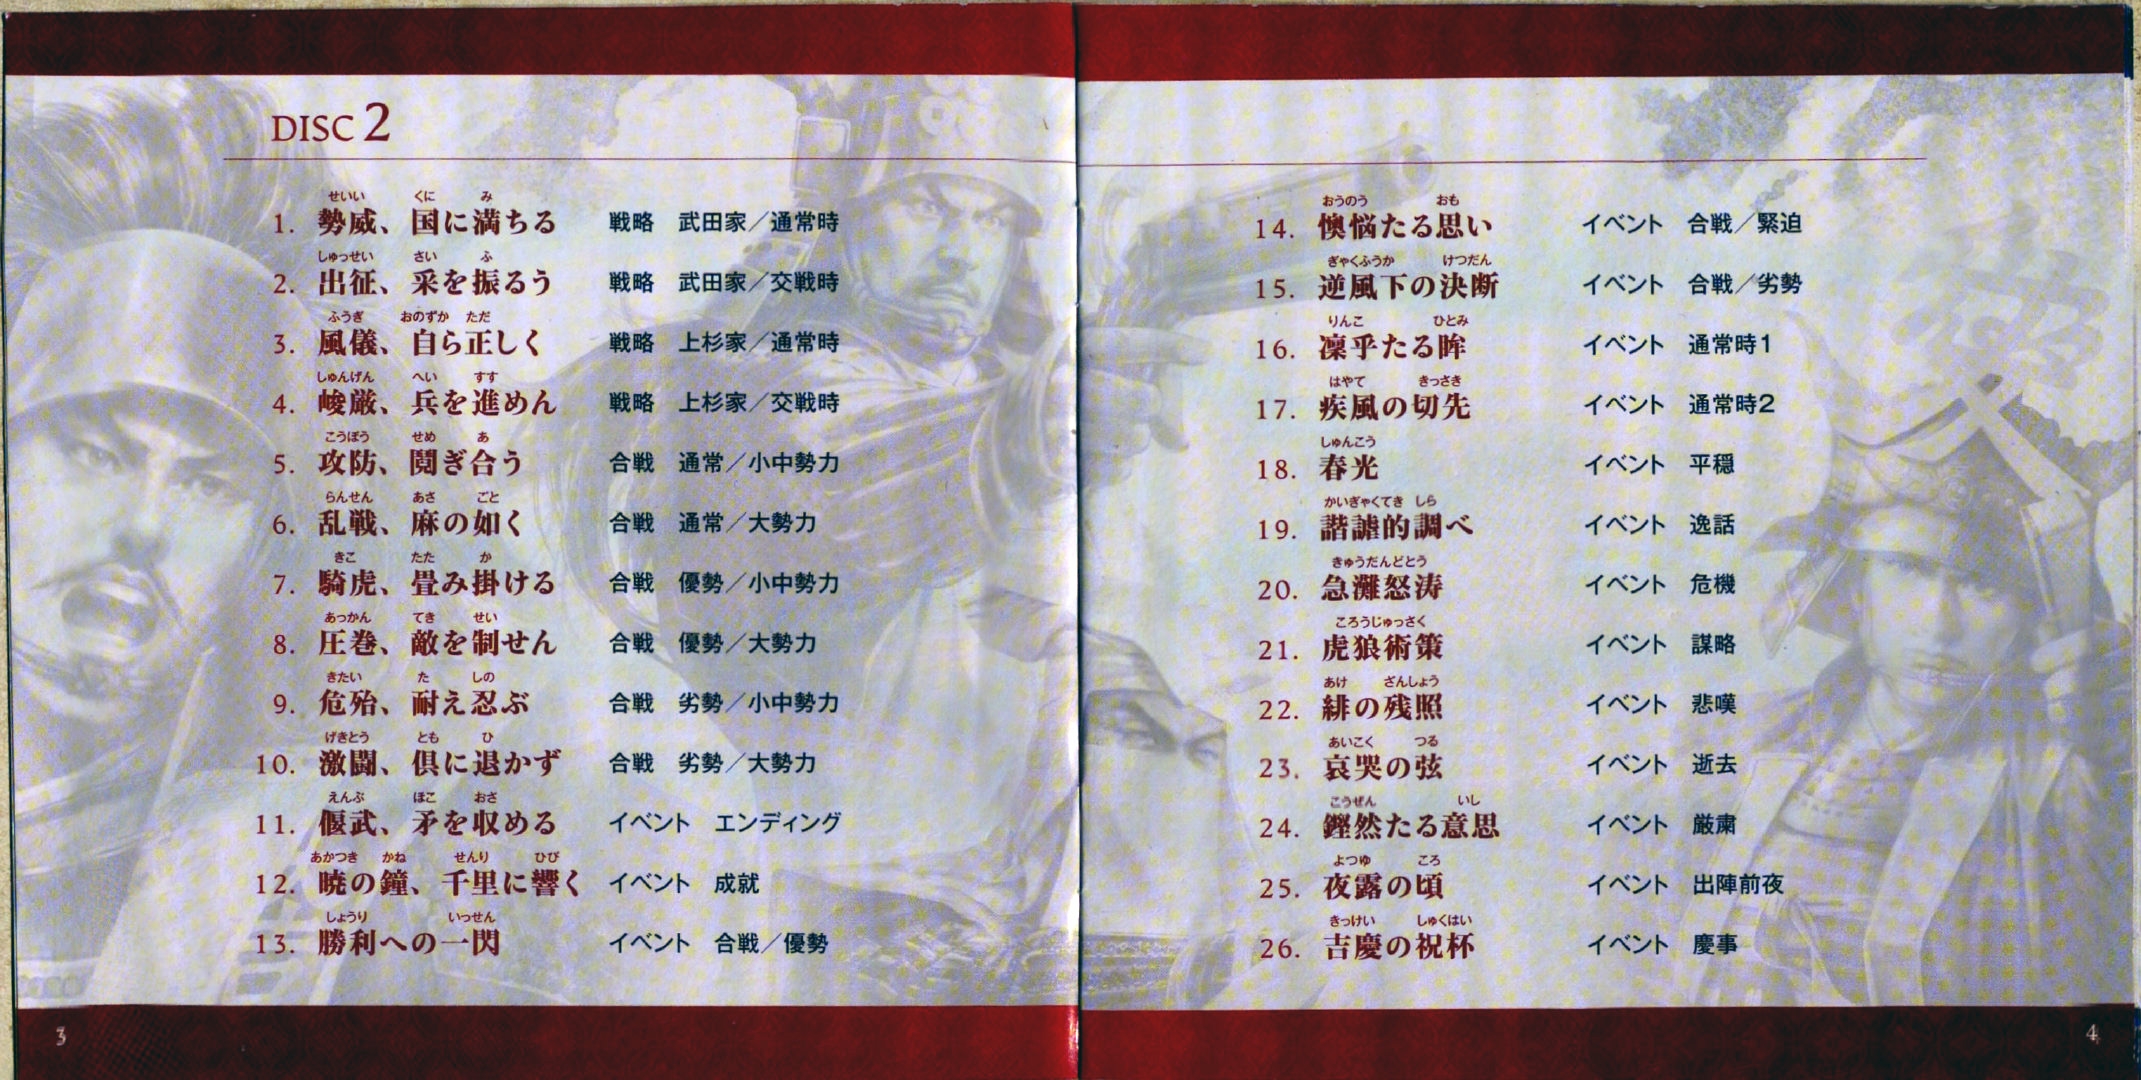 DISC 2
せいい くに み
1. 勢威、国に満ちる 戦略 武田家／通常時
しゅっせい さい ふ
2. 出征、采を振るう 戦略 武田家／交戦時
ふうぎ おのずか ただ
3. 風儀、自ら正しく 戦略 上杉家／通常時
しゅんげん へい すす
4. 峻厳、兵を進めん 戦略 上杉家／交戦時
こうぼう せめ あ
5. 攻防、鬩ぎ合う 合戦 通常／小中勢力
らんせん あさ ごと
6. 乱戦、麻の如く 合戦 通常／大勢力
きこ たた か
7. 騎虎、畳み掛ける 合戦 優勢／小中勢力
あっかん てき せい
8. 圧巻、敵を制せん 合戦 優勢／大勢力
きたい た しの
9. 危殆、耐え忍ぶ 合戦 劣勢／小中勢力
げきとう とも ひ
10. 激闘、倶に退かず 合戦 劣勢／大勢力
えんぶ ほこ おさ
11. 偃武、矛を収める イベント エンディング
あかつき かね せんり ひび
12. 暁の鐘、千里に響く イベント 成就
しょうり いっせん
13. 勝利への一閃 イベント 合戦／優勢
3
おうのう おも
14. 懊悩たる思い イベント 合戦／緊迫
ぎゃくふうか けつだん
15. 逆風下の決断 イベント 合戦／劣勢
りんこ ひとみ
16. 凜乎たる眸 イベント 通常時1
はやて きっさき
17. 疾風の切先 イベント 通常時2
しゅんこう
18. 春光 イベント 平穏
かいぎゃくてき しら
19. 諧謔的調べ イベント 逸話
きゅうだんどとう
20. 急灘怒涛 イベント 危機
ころうじゅっさく
21. 虎狼術策 イベント 謀略
あけ ざんしょう
22. 緋の残照 イベント 悲嘆
あいこく つる
23. 哀哭の弦 イベント 逝去
こうぜん いし
24. 鏗然たる意思 イベント 厳粛
よつゆ ころ
25. 夜露の頃 イベント 出陣前夜
きっけい しゅくはい
26. 吉慶の祝杯 イベント 慶事
4